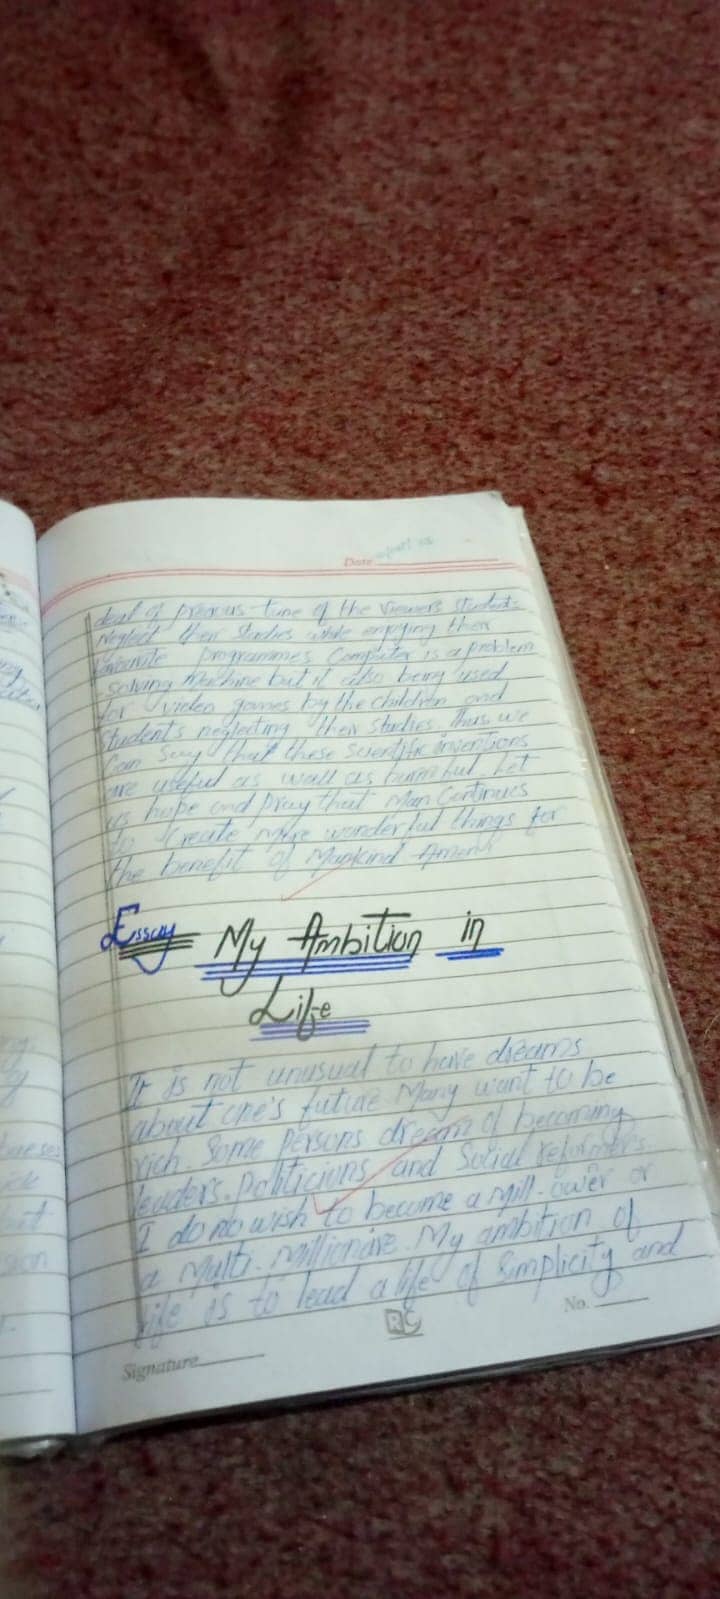 Date
deal of precious time of the viewers students
neglect their studies while enjoying their
favourite programmes. Computer is a problem
solving machine but it also being used
for video games by the children and
students neglecting their studies. Thus we
Can Say that these scientific inventions
are useful as wall as harmful. Let
us hope and pray that Man Continues
to Create more wonderful things for
the benefit of Mankind Amen
Essay My Ambition in
Life
It is not unusual to have dreams
about one's future Many want to be
rich. Some persons dream of becoming
leaders. Politicians and Social reformers
I do no wish to become a mill-ower or
a Multi-millionaire. My ambition of
life is to lead a life of Simplicity and
RC
No.
Signature